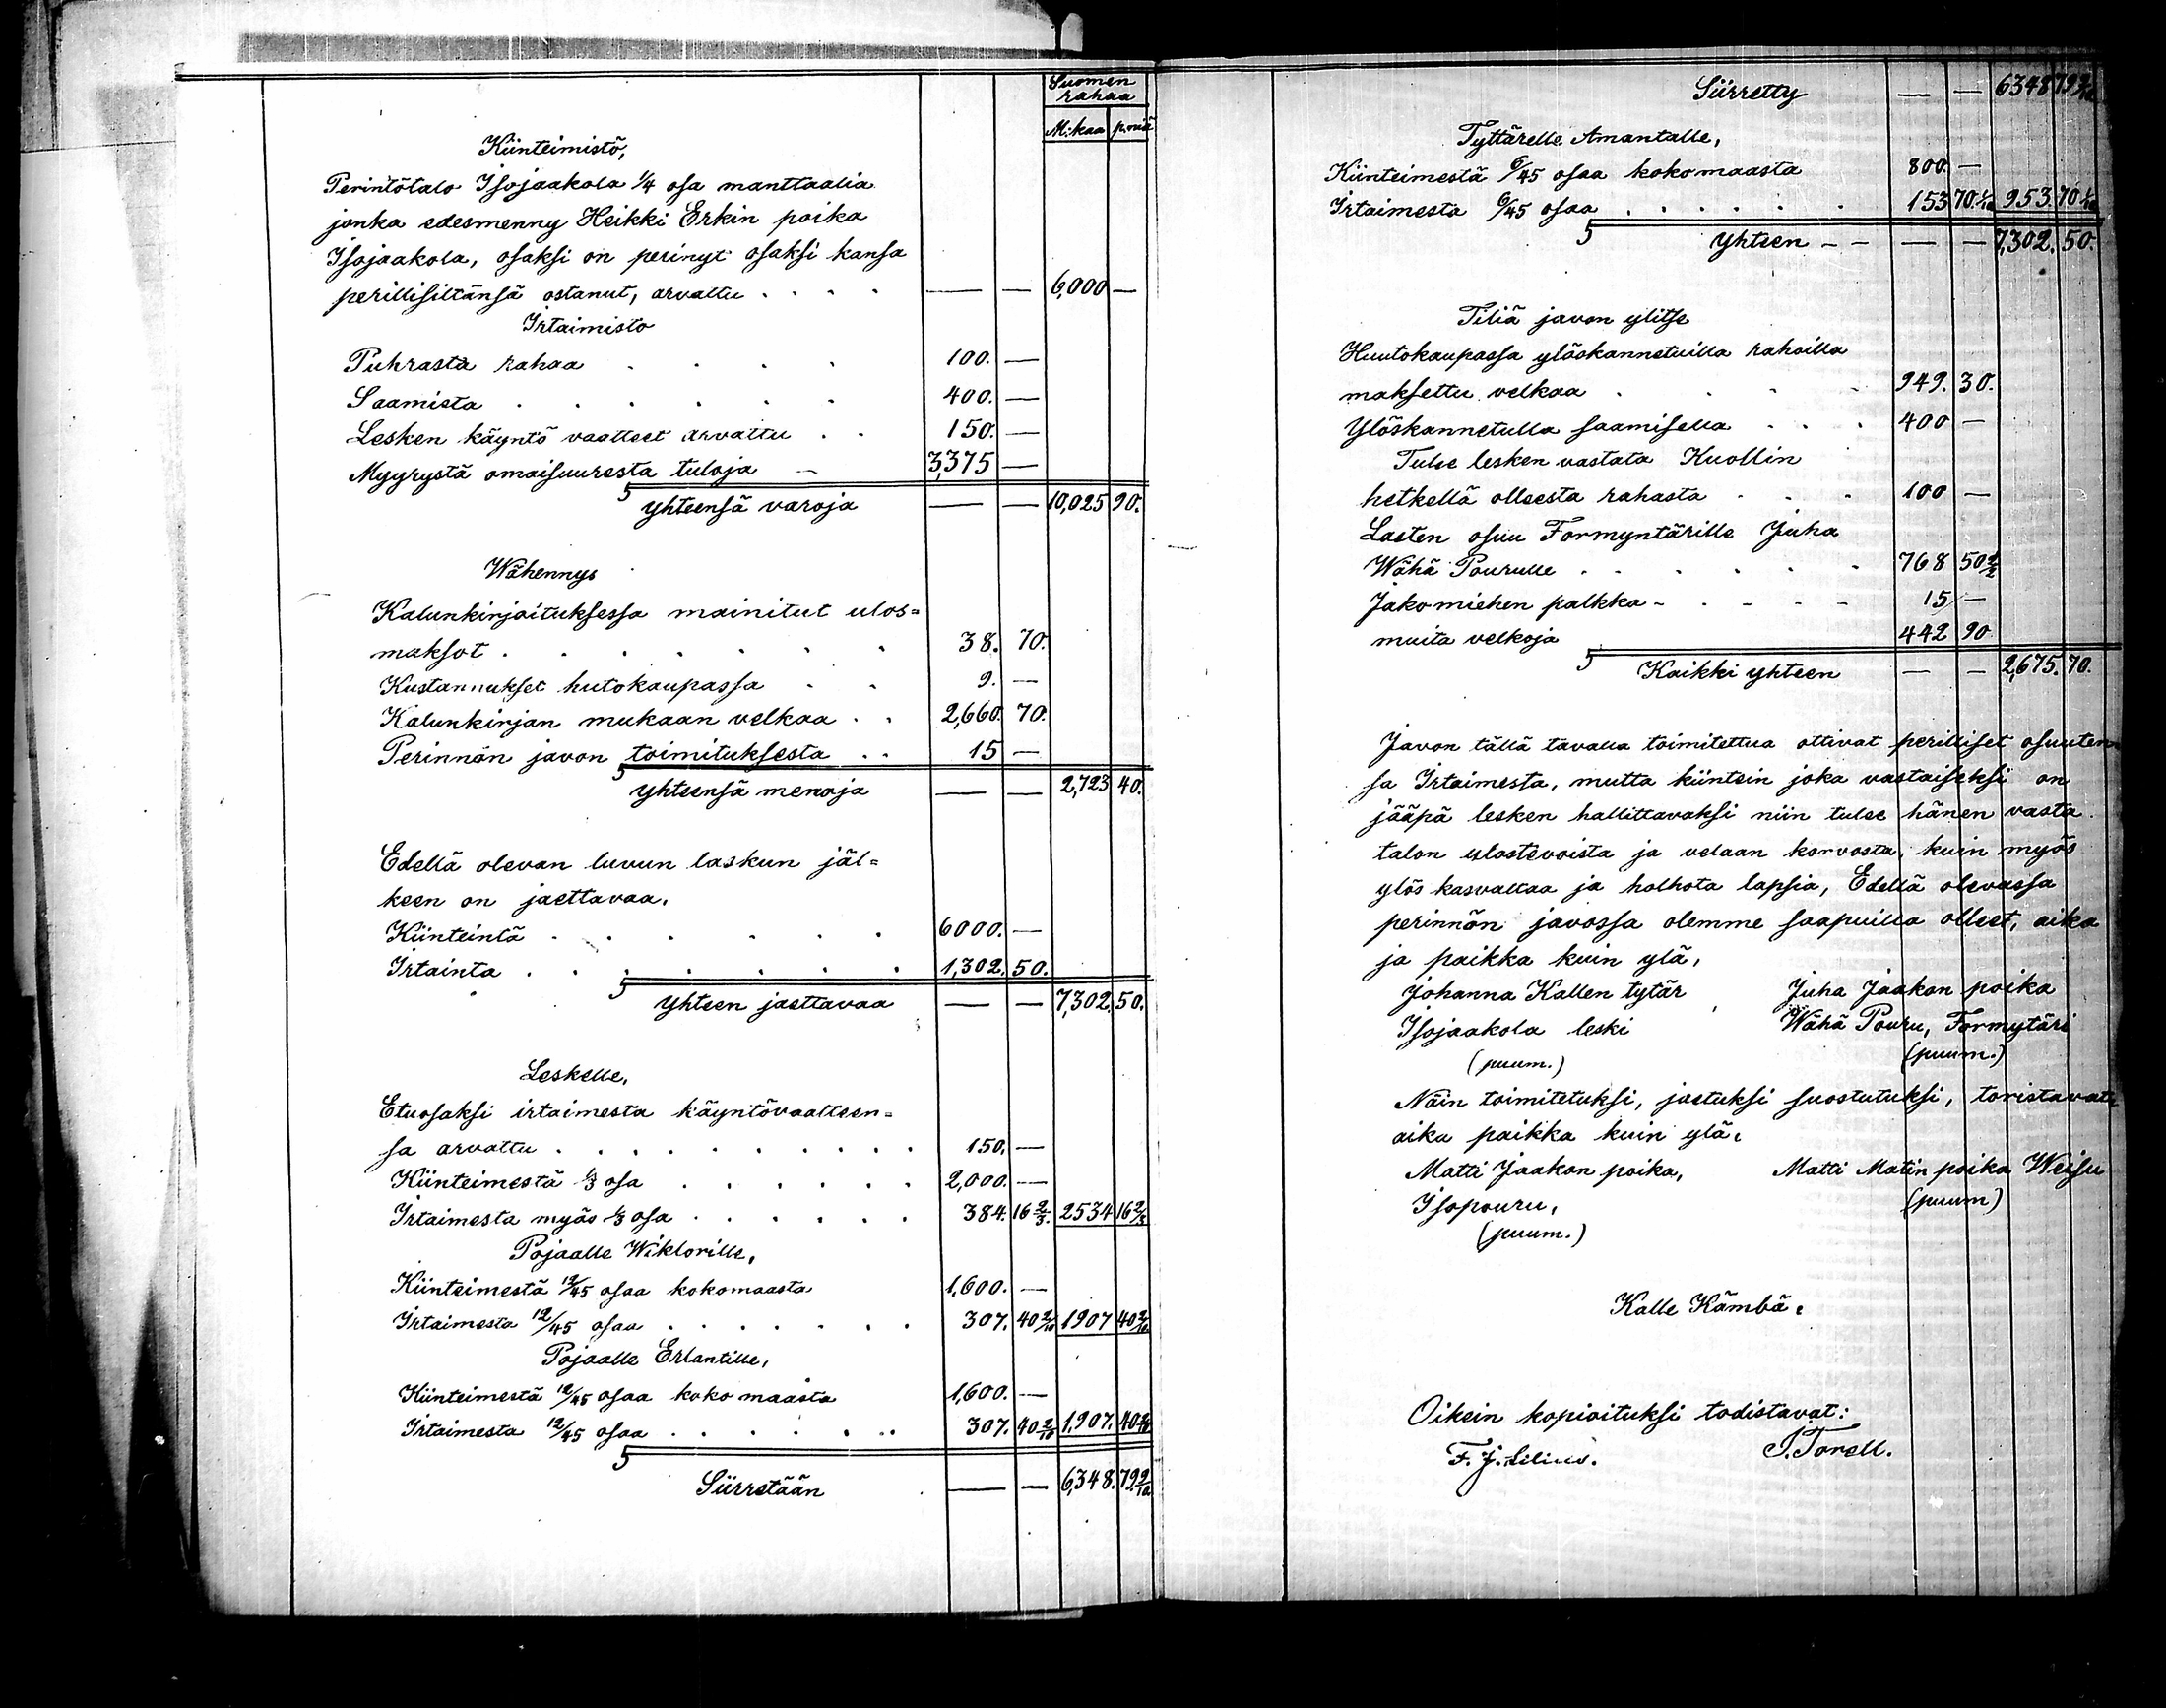 Suomen
rahaa
M:kaa p:niä
Kiinteimistö,
Perintötalo Isojaakola 1/4 osa manttaalia
jonka edesmenny Heikki Erkin poika
Isojaakola, osaksi on perinyt osaksi kansa
perillisiltänsä ostanut, arvattu . . . . — — 6,000 —
Irtaimisto
Puhrasta rahaa . . . . 100. —
Saamista . . . . . . 400. —
Lesken käyntö vaatteet arvattu . . 150. —
Myyrystä omaisuuresta tuloja — 3,375 —
Yhteensä varoja — — 10,025 90.
Wähennys
Kalunkirjoituksessa mainitut ulos=
maksot . . . . . . 38. 70.
Kustannukset hutokaupassa . . 9. —
Kalunkirjan mukaan velkaa . . 2,660. 70.
Perinnön javon toimituksesta . . 15 —
Yhteensä menoja — — 2,723 40.
Edellä olevan luvun laskun jäl=
keen on jaettavaa.
Kiinteintä . . . . . . 6000. —
Irtainta . . . . . . 1,302. 50.
Yhteen jaettavaa — — 7,302. 50.
Leskelle,
Etuosaksi irtaimesta käyntövaatteen=
sa arvattu . . . . . . . . . 150. —
Kiinteimestä 1/3 osa . . . . . . 2,000. —
Irtaimesta myös 1/3 osa . . . . . . 384. 16 2/3. 2534 16 2/3
Pojaalle Wiktorille,
Kiinteimestä 12/45 osaa kokomaasta 1,600. —
Irtaimesta 12/45 osaa . . . . . . . 307. 40 2/10 1907 40 2/10
Pojaalle Erlantille,
Kiinteimestä 12/45 osaa koko maasta 1,600. —
Irtaimesta 12/45 osaa . . . . . . . 307. 40 2/10 1,907. 40 2/10
Siirretään — — 6,348. 79 2/10
Siirretty — — 6348 79 2/10
Tyttärelle Amantalle,
Kiinteimestä 6/45 osaa kokomaasta 800. —
Irtaimesta 6/45 osaa . . . . . . 153 70 1/10 953. 70 1/10
Yhteen - - — — 7,302. 50.
Tiliä javon ylitse
Huutokaupassa ylöskannetuilla rahoilla
maksettu velkaa . . . . 949. 30.
Ylöskannetulla saamisella . . . 400 —
Tulee lesken vastata Kuollin
hetkellä olleesta rahasta . . . 100 —
Lasten osuu Formyntärille Juha
Wähä Pourulle . . . . . . 768 50 2/2
Jakomiehen palkka - . - - - 15 —
muita velkoja 442 90
Kaikki yhteen — — 2,675. 70.
Javon tällä tavalla toimitettua ottivat perilliset osuuten
sa Irtaimesta, mutta kiintein joka vastaiseksi on
jääpä lesken hallittavaksi niin tulee hänen vasta.
talon ulostevoista ja velaan korvosta, kuin myös
ylös kasvattaa ja holhota lapsia, Edellä olevassa
perinnön javossa olemme saapuilla olleet, aika
ja paikka kuin ylä,
Johanna Kallen tytär Juha Jaakon poika
Isojaakola leski Wähä Pouru, Formytäri
(puum.) (puum.)
Näin toimitetuksi, jaetuksi suostutuksi, toristavat
aika paikka kuin ylä.
Matti Jaakon poika, Matti Matin poika Weisu
Isopouru, (puum)
(puum.)
Kalle Kämbä.
Oikein kopioituksi todistavat:
F. J. Lilius. T. Torell.